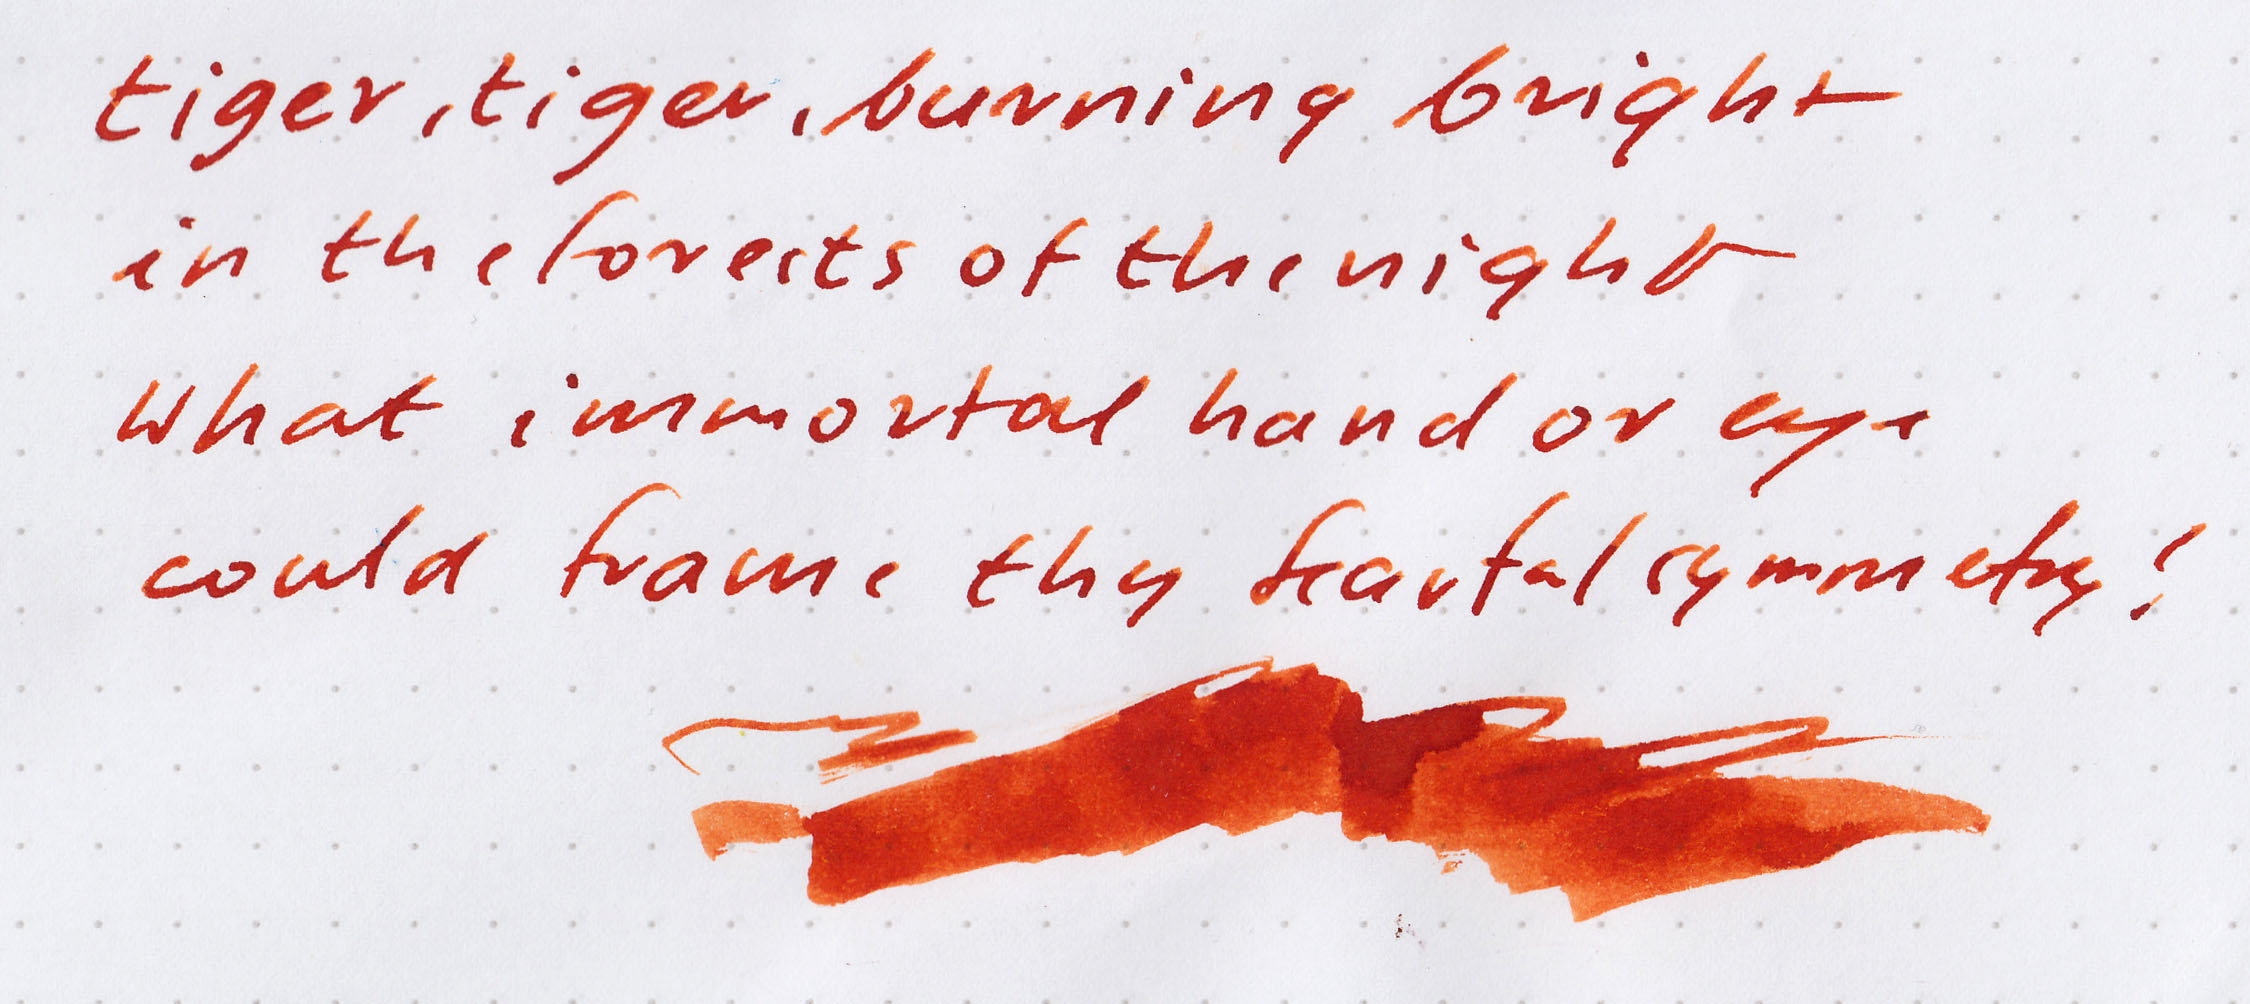 tiger, tiger, burning bright
in the forests of the night
What immortal hand or eye
could frame thy fearful symmetry!